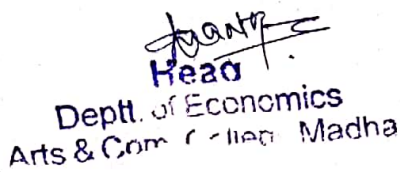 Head
Deptt. of Economics
Arts & Com Madha